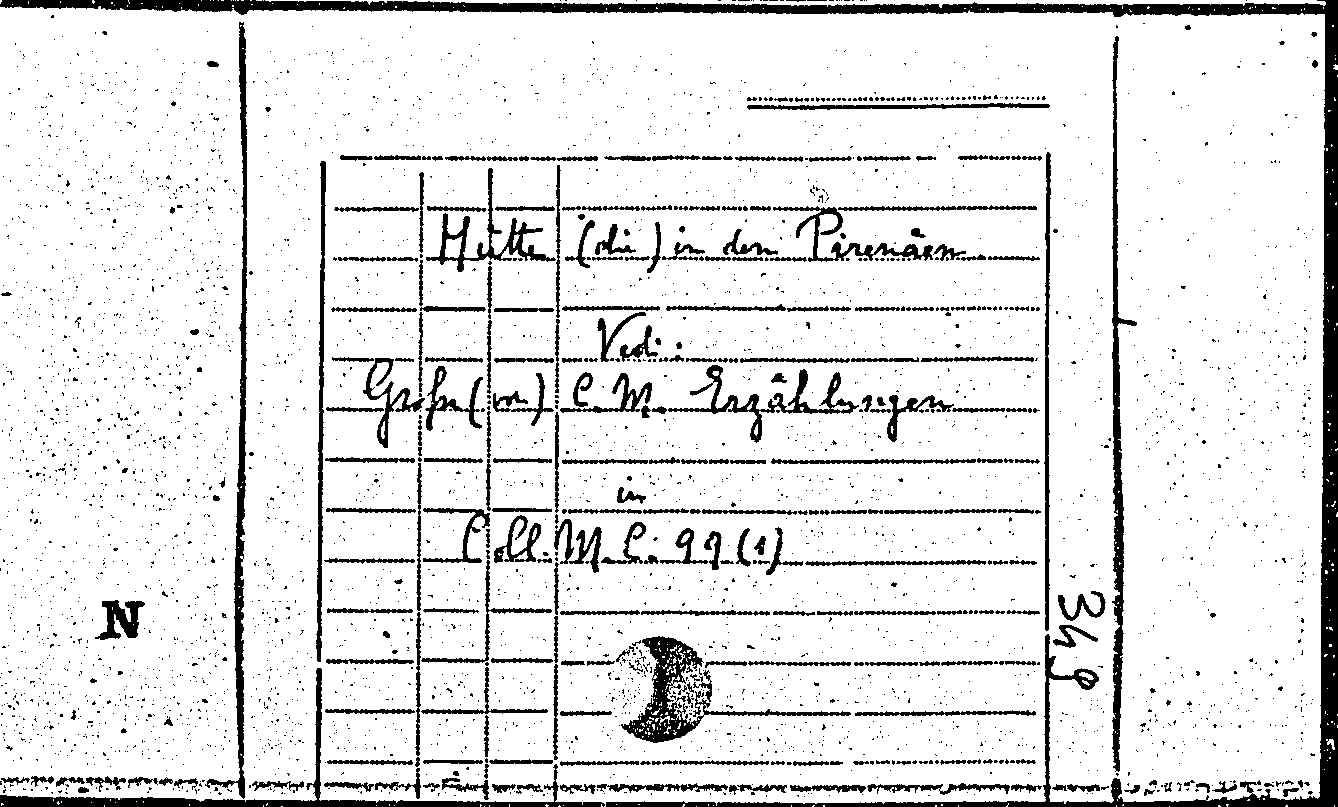 Hütte (die) in den Pirenäen
Vedi:
Große (von) C. M. Erzählungen
in
Coll. M. C. 99 (1)
N
349